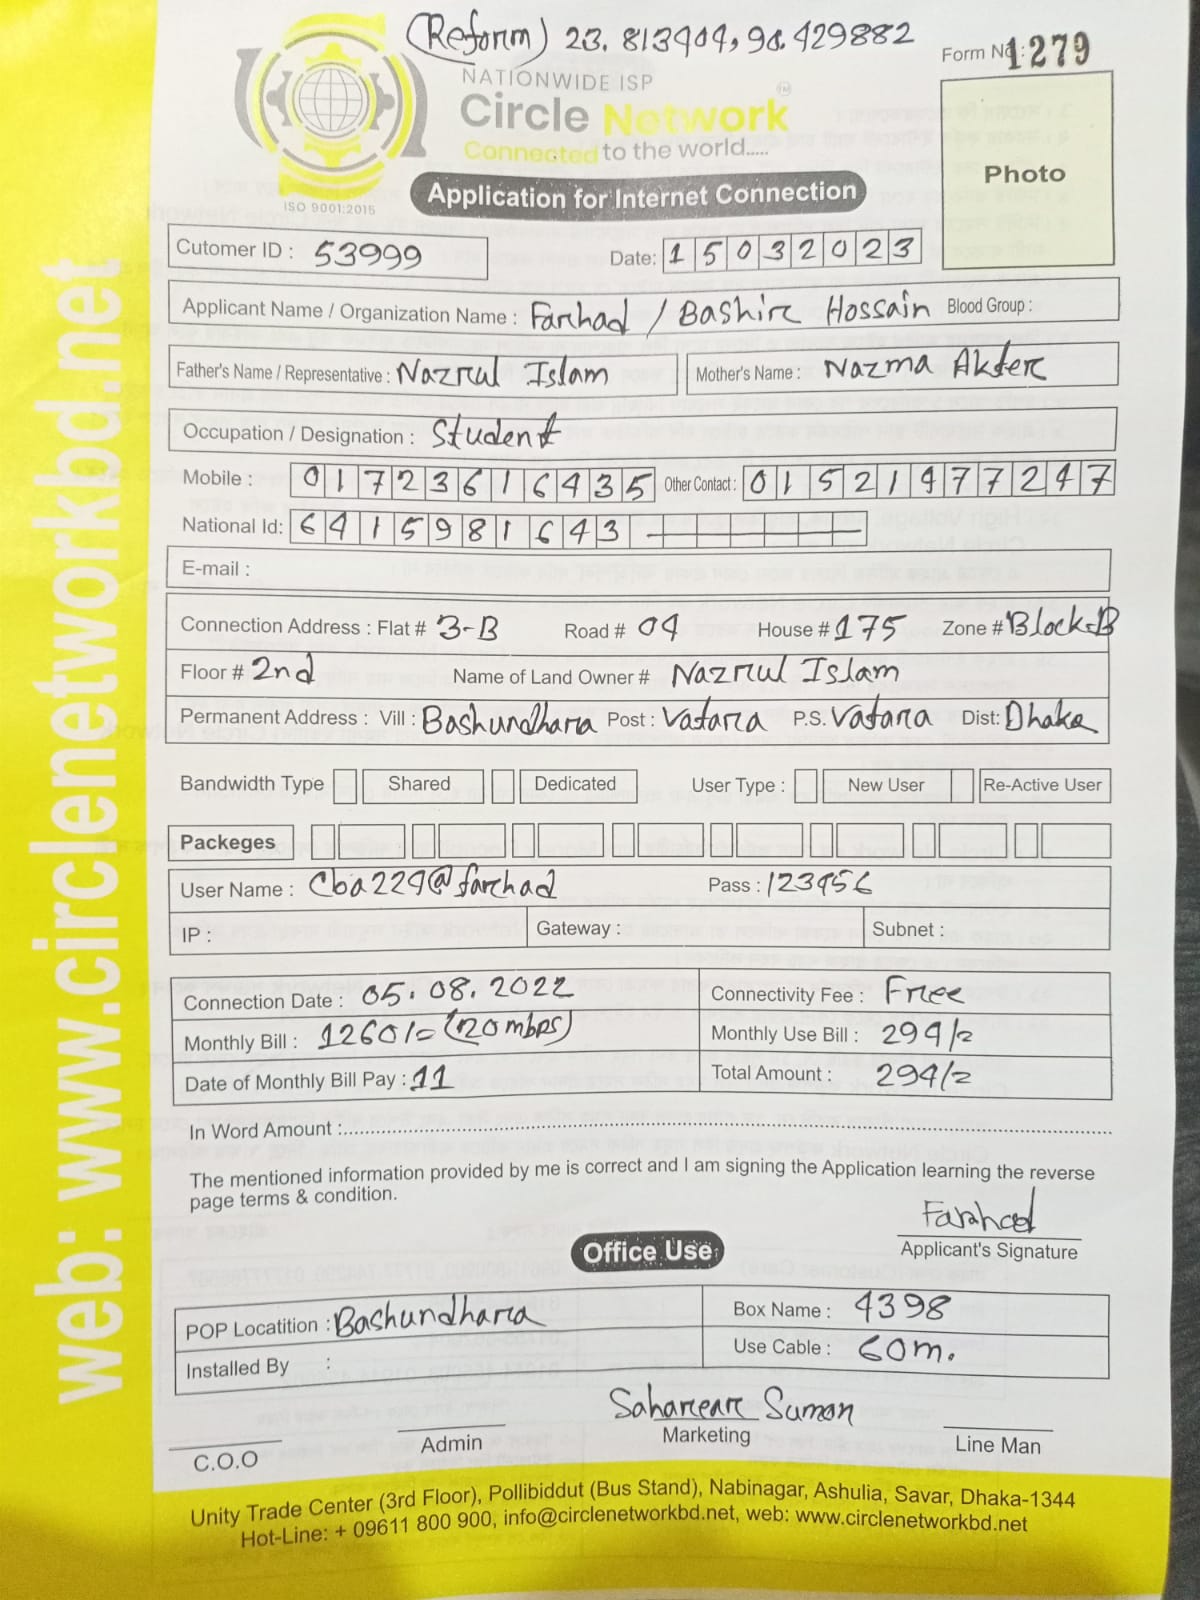 (Reform) 23.813404, 90.429882
Form No: 1279
NATIONWIDE ISP
Circle Network TM
Connected to the world.....
ISO 9001:2015
Application for Internet Connection
Photo
Cutomer ID : 53999
Date: 15032023
Applicant Name / Organization Name : Farhad / Bashir Hossain Blood Group :
Father's Name / Representative : Nazrul Islam Mother's Name : Nazma Akter
Occupation / Designation : Student
Mobile : 01723616435 Other Contact : 01521977247
National Id: 6415981643
E-mail :
Connection Address : Flat # 3-B Road # 04 House # 175 Zone # Block-B
Floor # 2nd Name of Land Owner # Nazrul Islam
Permanent Address : Vill : Bashundhara Post : Vatara P.S. Vatara Dist: Dhaka
Bandwidth Type Shared Dedicated User Type : New User Re-Active User
Packeges
User Name : Cba224@farhad Pass : 123456
IP : Gateway : Subnet :
Connection Date : 05.08.2022 Connectivity Fee : Free
Monthly Bill : 1260/= (20mbps) Monthly Use Bill : 294/=
Date of Monthly Bill Pay : 11 Total Amount : 294/=
In Word Amount :
The mentioned information provided by me is correct and I am signing the Application learning the reverse
page terms & condition.
Farhad
Applicant's Signature
Office Use
POP Locatition : Bashundhara Box Name : 4398
Installed By : Use Cable : 60m.
Saharear Sumon
C.O.O Admin Marketing Line Man
Unity Trade Center (3rd Floor), Pollibiddut (Bus Stand), Nabinagar, Ashulia, Savar, Dhaka-1344
Hot-Line: + 09611 800 900, info@circlenetworkbd.net, web: www.circlenetworkbd.net
web: www.circlenetworkbd.net